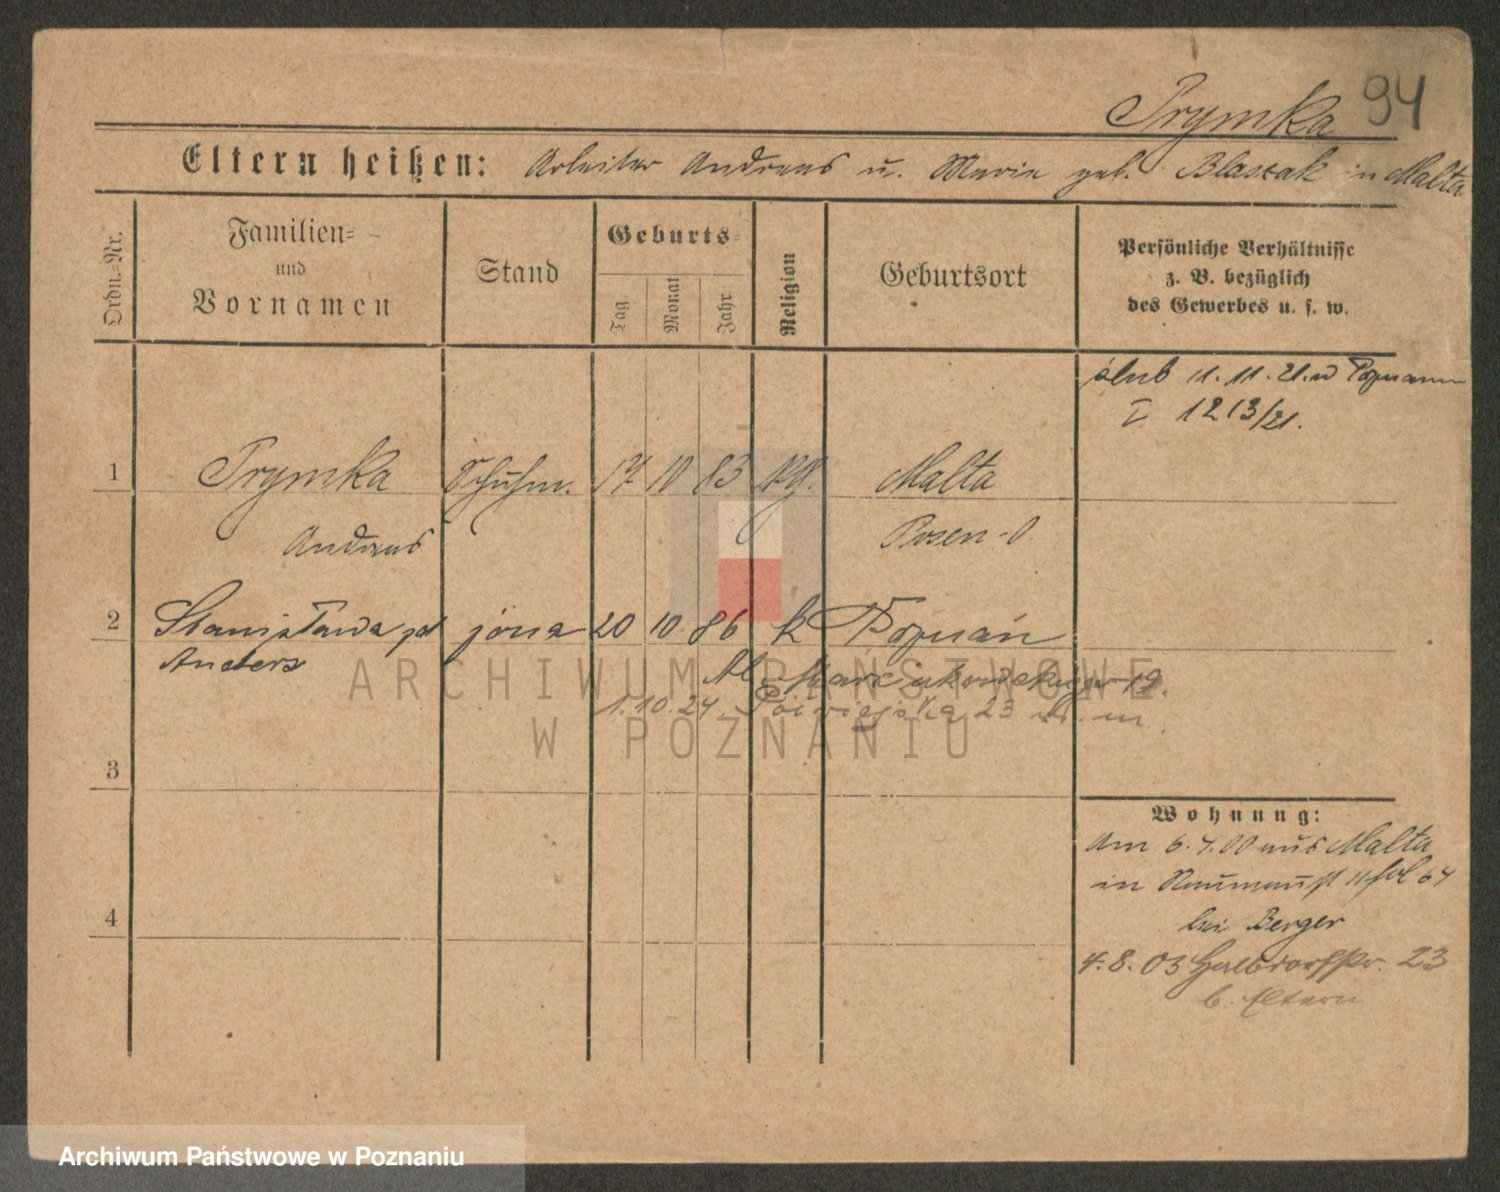 Prymka 94
Eltern heißen: Arbeiter Andreas u. Marie geb. Blaszak in Malta
Ordn.=Nr.
Familien=
und
Vornamen
Stand
Geburts=
Tag
Monat
Jahr
Religion
Geburtsort
Persönliche Verhältnisse
z. B. bezüglich
des Gewerbes u. s. w.
ślub 11.11.21. w Poznaniu
I 1213/21.
1 Prymka Schuhm. 17 10 83 kg. Malta
Andreas Posen-O
2 Stanisława żona 20 10 86 k Poznań
Anders
Al. Marcinkowskiego 19.
1.10.24 Półwiejska 23
3
4
Wohnung:
Am 6.7.00 aus Malta
in
bei Berger
4.8.03 Halbdorfstr. 23
b. Eltern
ARCHIWUM PAŃSTWOWE
W POZNANIU
Archiwum Państwowe w Poznaniu